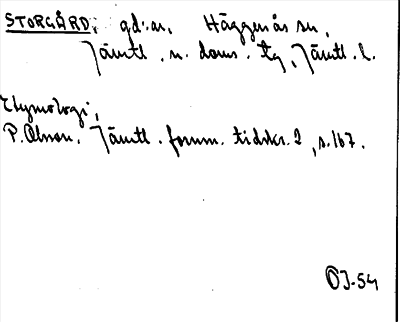 STORGÅRD; gd:ar, Häggenås sn,
Jämtl. n. doms. tg, Jämtl. l.
Etymologi,
P. Olsson. Jämtl. fornm. tidskr. 2, s. 167.
OJ-54